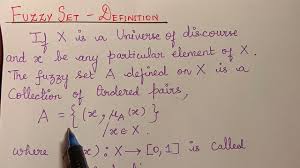 FUZZY SET - DEFINITION
If X is a Universe of discourse
and x be any particular element of X.
The fuzzy set A defined on X is a
Collection of Ordered pairs,
A = { (x, μA(x)) }
/x ∈ X.
where (x) : X → [0, 1] is called